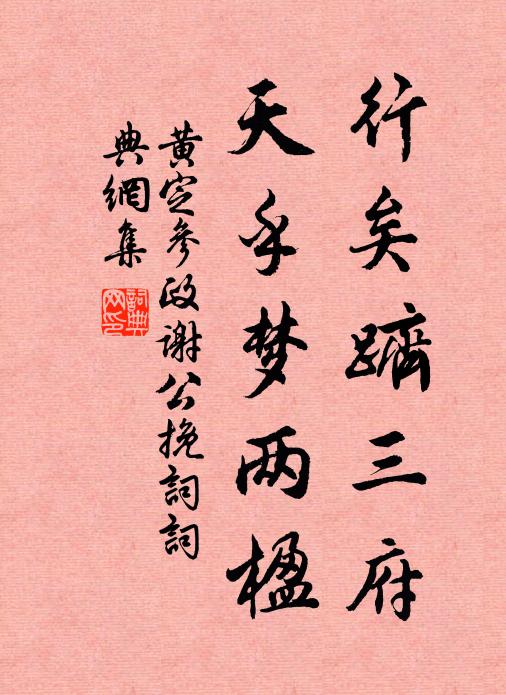 行矣躋三府
天乎梦两楹
黄定参政谢公挽詞詞
典網集
詞典网印